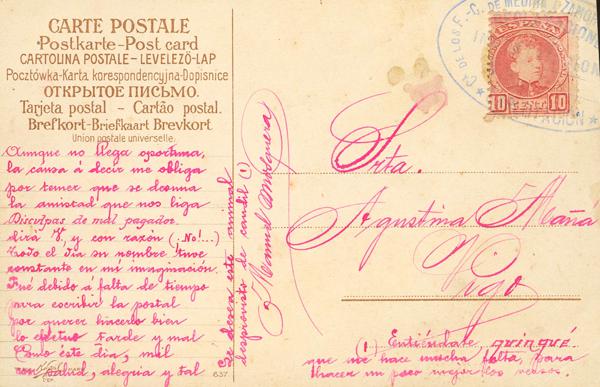 CARTE POSTALE
Postkarte-Post card
CARTOLINA POSTALE-LEVELEZŐ-LAP
Pocztówka-Karta korespondencyjna-Dopisnice
ОТКРЫТОЕ ПИСЬМО.
Tarjeta postal - Cartão postal.
Brefkort-Briefkaart Brevkort
Union postale universelle.
Aunque no llega oportuna,
la causa á decir me obliga
por temer que se desuna
la amistad que nos liga
Disculpas de mal pagador.
dirá V. y con razón (¡No!...)
todo el día su nombre tuve
constante en mi imaginación.
Fué debido á falta de tiempo
para escribir la postal
por querer hacerlo bien
lo efectuo tarde y mal
Como este día, mil
con salud, alegria y tal
637
Se desea este animal
desprovisto de candil (1)
Manuel
Srta.
Agustina Mañá
Vigo
(1) Entiéndase quinqué
que me hace mucha falta, para
thacer un poco mejor los versos.
ESPAÑA
10 CENT. 10
Cª DE LOS F.-C. DE MEDINA Á ZAMORA